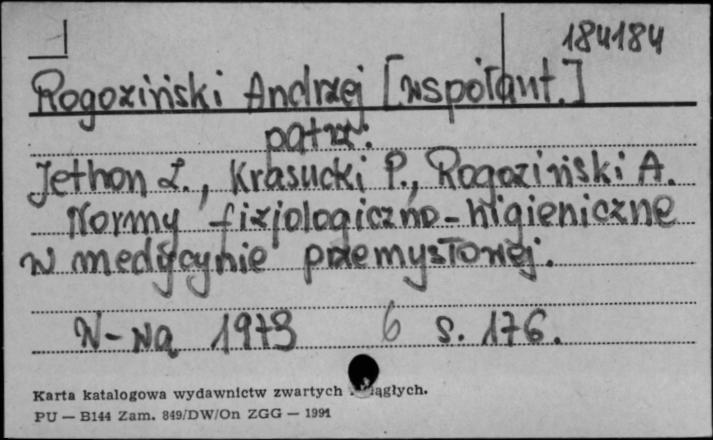 184184
Rogoziński Andrzej [współaut.]
patrz:
Jethon Z., Krasucki P., Rogoziński A.
Normy fizjologiczno-higieniczne
w medycynie przemysłowej.
W-wa 1973 6 s. 176.
Karta katalogowa wydawnictw zwartych ciągłych.
PU — B144 Zam. 849/DW/On ZGG — 1991